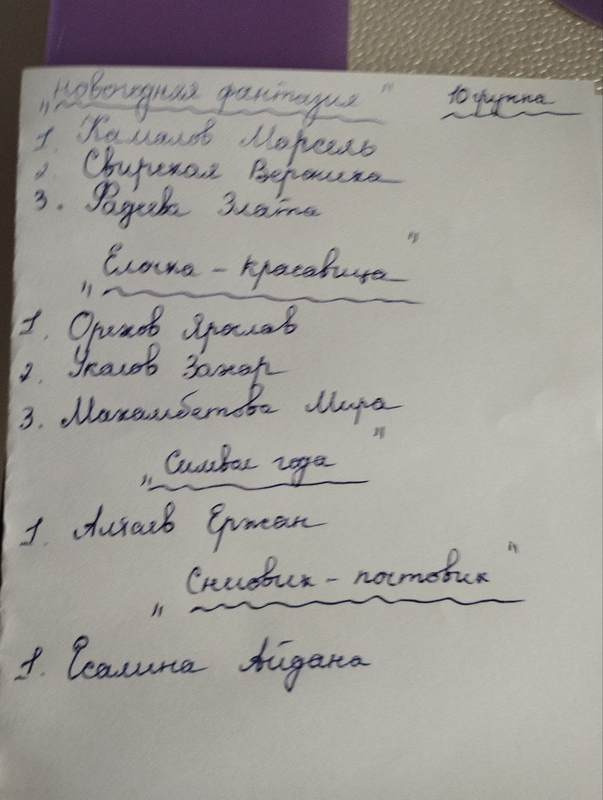 „Новогодняя фантазия" 10 группа
1. Камалов Марсель
2. Свирская Вероника
3. Фадеева Злата
„Ёлочка - красавица"
1. Орехов Ярослав
2. Укалов Захар
3. Махамбетова Мира
„Символ года"
1. Алтаев Ержан
„Снеговик - почтовик"
1. Есалина Айдана